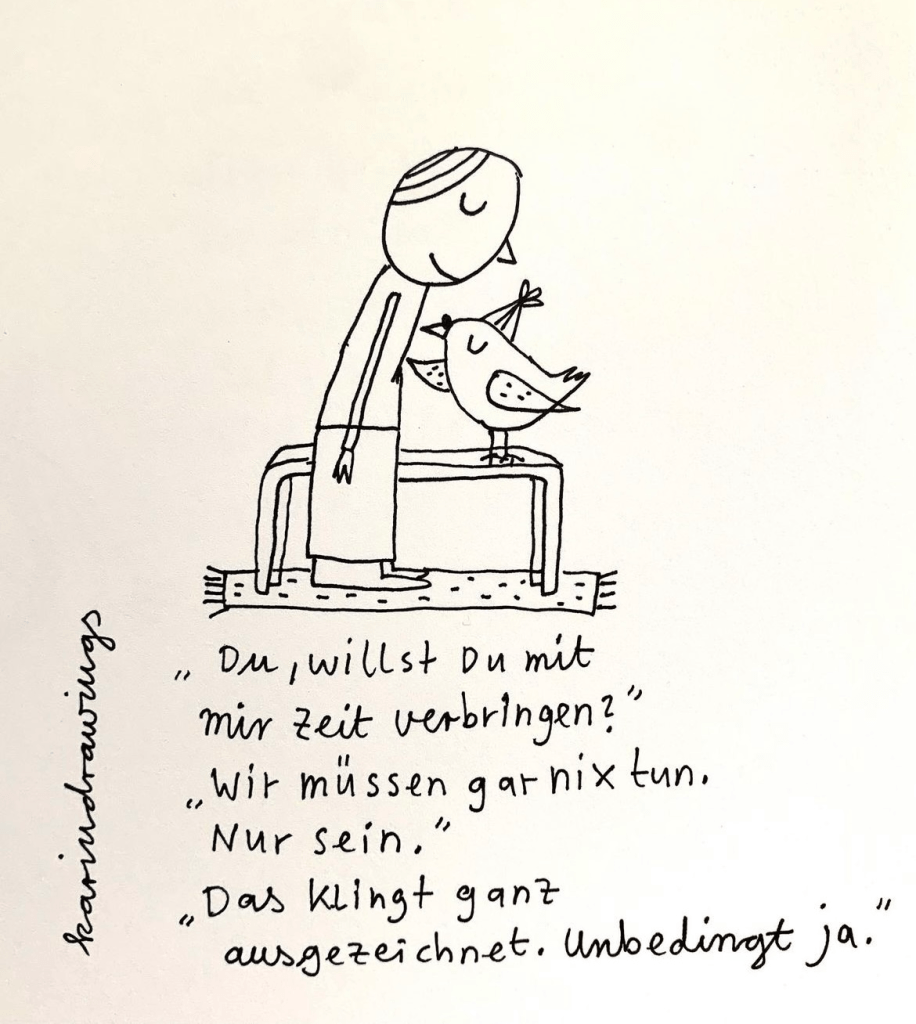 „Du, willst Du mit
mir Zeit verbringen?"
„Wir müssen gar nix tun.
Nur sein."
„Das klingt ganz
ausgezeichnet. Unbedingt ja."
karindrawings